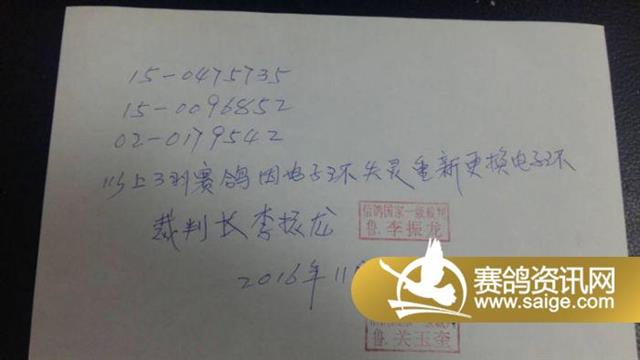 15-0475735
15-0096852
02-0179542
以上3羽赛鸽因电子环失灵重新更换电子环
裁判长李振龙
信鸽国家一级裁判
鲁.李振龙
2016年11
赛鸽资讯网
www.saige.com
鲁.关玉奎